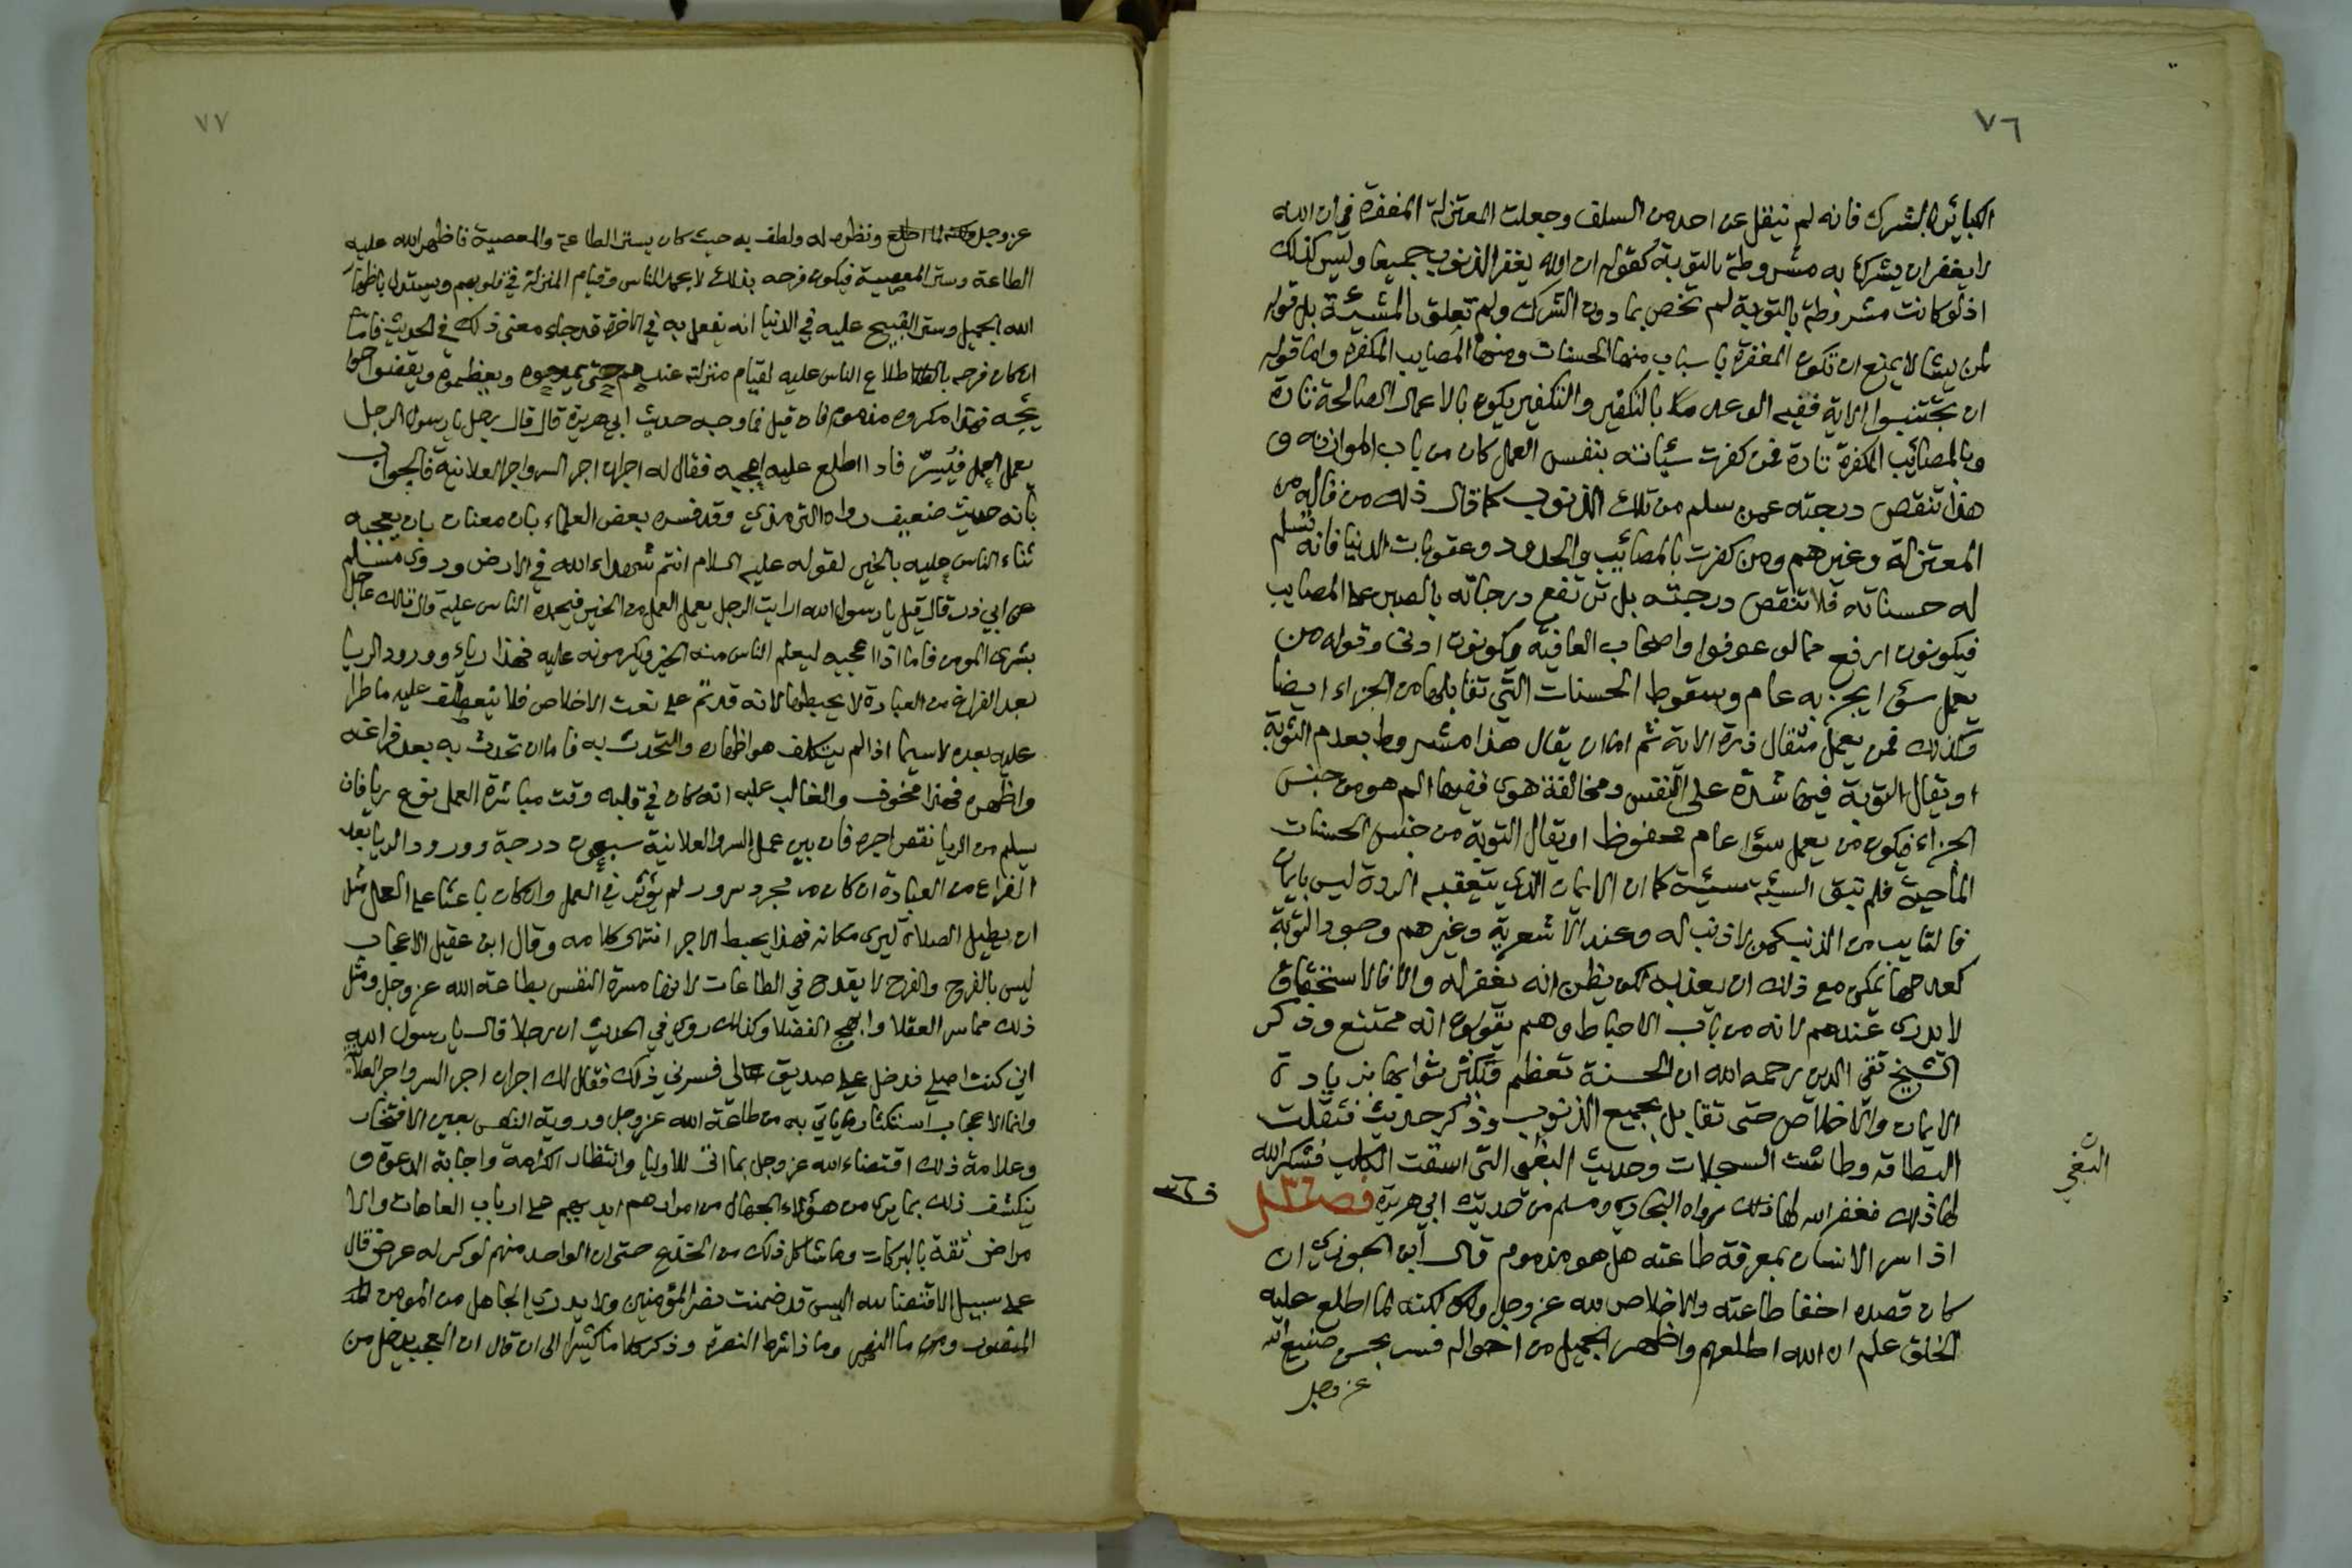 ٧٦
الكبائر الا الشرك فانه لم ينقل عن احد من السلف وجعلت المعتزلة المغفرة في ان الله
لا يغفر ان يشرك به مشروطة بالتوبة كقوله ان الله يغفر الذنوب جميعا وليس كذلك
اذ لو كانت مشروطة بالتوبة لم تخص بما دون الشرك ولم تعلق بالمشيئة بل قوله
لمن يشا لا يمنع ان تكون المغفرة باسباب منها الحسنات ومنها المصايب المكفرة واما قوله
ان تجتنبوا الاية ففيه الوعد بالتكفير والتكفير يكون بالاعمال الصالحة تارة
وبالمصائب المكفرة تارة فمن كفرت سيئاته بنفس العمل كان من باب الموازنة و
هذا تنقص درجته عمن سلم من تلك الذنوب كما قال ذلك من قاله من
المعتزلة وغيرهم ومن كفرت بالمصائب والحدود وعقوبات الدنيا فانه تسلم
له حسناته فلا تنقص درجته بل ترتفع درجاته بالصبر على المصايب
فيكونون ارفع مما لو عوفوا واصحاب العافية يكونون ادنى وقوله من
يعمل سؤا يجز به عام وسقوط الحسنات التي تقابلها من الجزاء ايضا
وكذلك فمن يعمل مثقال ذرة الاية ثم اما ان يقال هذا مشروط بعدم التوبة
او يقال التوبة فيها شدة على النفس ومخالفة هوى ففيها الم هو من جنس
الجزاء فيكون من يعمل سؤا عام محفوظ او يقال التوبة من جنس الحسنات
الماحية فلم تبق السيئة سيئة كما ان الايمان الذي يتعقبه الردة ليس بايمان
فالتايب من الذنب كمن لا ذنب له وعند الاشعرية وغيرهم وجود التوبة
كعدمها يمكن مع ذلك ان يعذب لكن يظن انه يغفر له والا فالاستحقاق
لا يدري عندهم لانه من باب الاحباط وهم يقولون انه ممتنع وذكر
الشيخ تقي الدين رحمه الله ان الحسنة تعظم ويكثر ثوابها بزيادة
الايمان والاخلاص حتى تقابل بجميع الذنوب وذكر حديث فثقلت
البطاقة وطاشت السجلات وحديث البغي التي اسقت الكلب فشكر الله
لها ذلك فغفر الله لها ذلك رواه البخاري ومسلم من حديث ابي هريرة فصل ٣٦
اذا سر الانسان بمعرفة طاعته هل هو مذموم قال ابن الجوزي ان
كان قصده اخفا طاعته والاخلاص لله عز وجل ولكنه لما اطلع عليه
الخلق علم ان الله اطلعهم واظهر الجميل من احواله فسر بحسن صنيع الله
عز وجل
البغي
ف ٣٦
٧٧
عز وجل ونظره له ولطفه به حيث كان يستر الطاعة والمعصية فاظهر الله عليه
الطاعة وستر المعصية فيكون فرحه بذلك لا بحمد الناس وقيام المنزلة في قلوبهم ويستدل باظهار
الله الجميل وستر القبيح عليه في الدنيا انه يفعل به في الاخرة قد جاء معنى ذلك في الحديث فاما
ان كان فرحه باطلاع الناس عليه لقيام منزلته عندهم حتى يمدحوه ويعظموه ويقضوا حوا
يجه فهذا مكروه مذموم فان قيل فما وجه حديث ابي هريرة قال قال رجل يا رسول الله الرجل
يعمل العمل فيسره فاذا اطلع عليه اعجبه فقال له اجران اجر السر واجر العلانية فالجواب
بانه حديث ضعيف رواه الترمذي وقد فسره بعض العلماء بان معناه بان يعجبه
ثناء الناس عليه بالخير لقوله عليه السلام انتم شهداء الله في الارض وروى مسلم
عن ابي ذر قال قيل يا رسول الله ارايت الرجل يعمل العمل من الخير فيحمده الناس عليه قال تلك عاجل
بشرى المومن فاما اذا اعجبه ليعلم الناس منه الخير ويكرمونه عليه فهذا رياء وورود الريا
بعد الفراغ من العبادة لا يحبطها لانه قد تم على نعت الاخلاص فلا ينعطف عليه ما طرا
عليه بعده لا سيما اذا لم يتكلف هو اظهاره والتحدث به فاما ان تحدث به بعد فراغه
واظهره فهذا مخوف والغالب عليه انه كان في قلبه وقت مباشرة العمل نوع ريا فان
يسلم من الريا نقص اجره فان بين عمل السر والعلانية سبعون درجة وورود الريا بعد
الفراغ من العبادة ان كان من مجرد سرور لم يؤثر في العمل وان كان باعثا على العمل مثل
ان يطيل الصلاة ليرى مكانه فهذا يحبط الاجر انتهى كلامه وقال ابن عقيل الاعجاب
ليس بالفرح والفرح لا يقدح في الطاعات لانها مسرة النفس بطاعة الله عز وجل ومثل
ذلك مما سر العقلا وابهج الفضلا وكذلك روي في الحديث ان رجلا قال يا رسول الله
اني كنت اصلي فدخل علي صديق لي فسرني ذلك فقال لك اجران اجر السر واجر العلانية
وانما الاعجاب استكثار ما ياتي به من طاعة الله عز وجل وروية النفس بعين الافتخار
وعلامة ذلك اقتضاء الله عز وجل بما اتى للاوليا وانتظار الكرامة واجابة الدعوة و
ينكشف ذلك بما يرى من هؤلاء الجهال من امرارهم ايديهم على ارباب العاهات والا
مراض ثقة بالبركات وما شاكل ذلك من الخدع حتى ان الواحد منهم لو كسر له عرض قال
على سبيل الاقتضا لله اليس قد ضمنت نصر المؤمنين ولا يدري الجاهل من المومن
المنصور وما النصر وما ذا شرط النصرة وذكر كلاما كثيرا الى ان قال ان العجب يدخل من